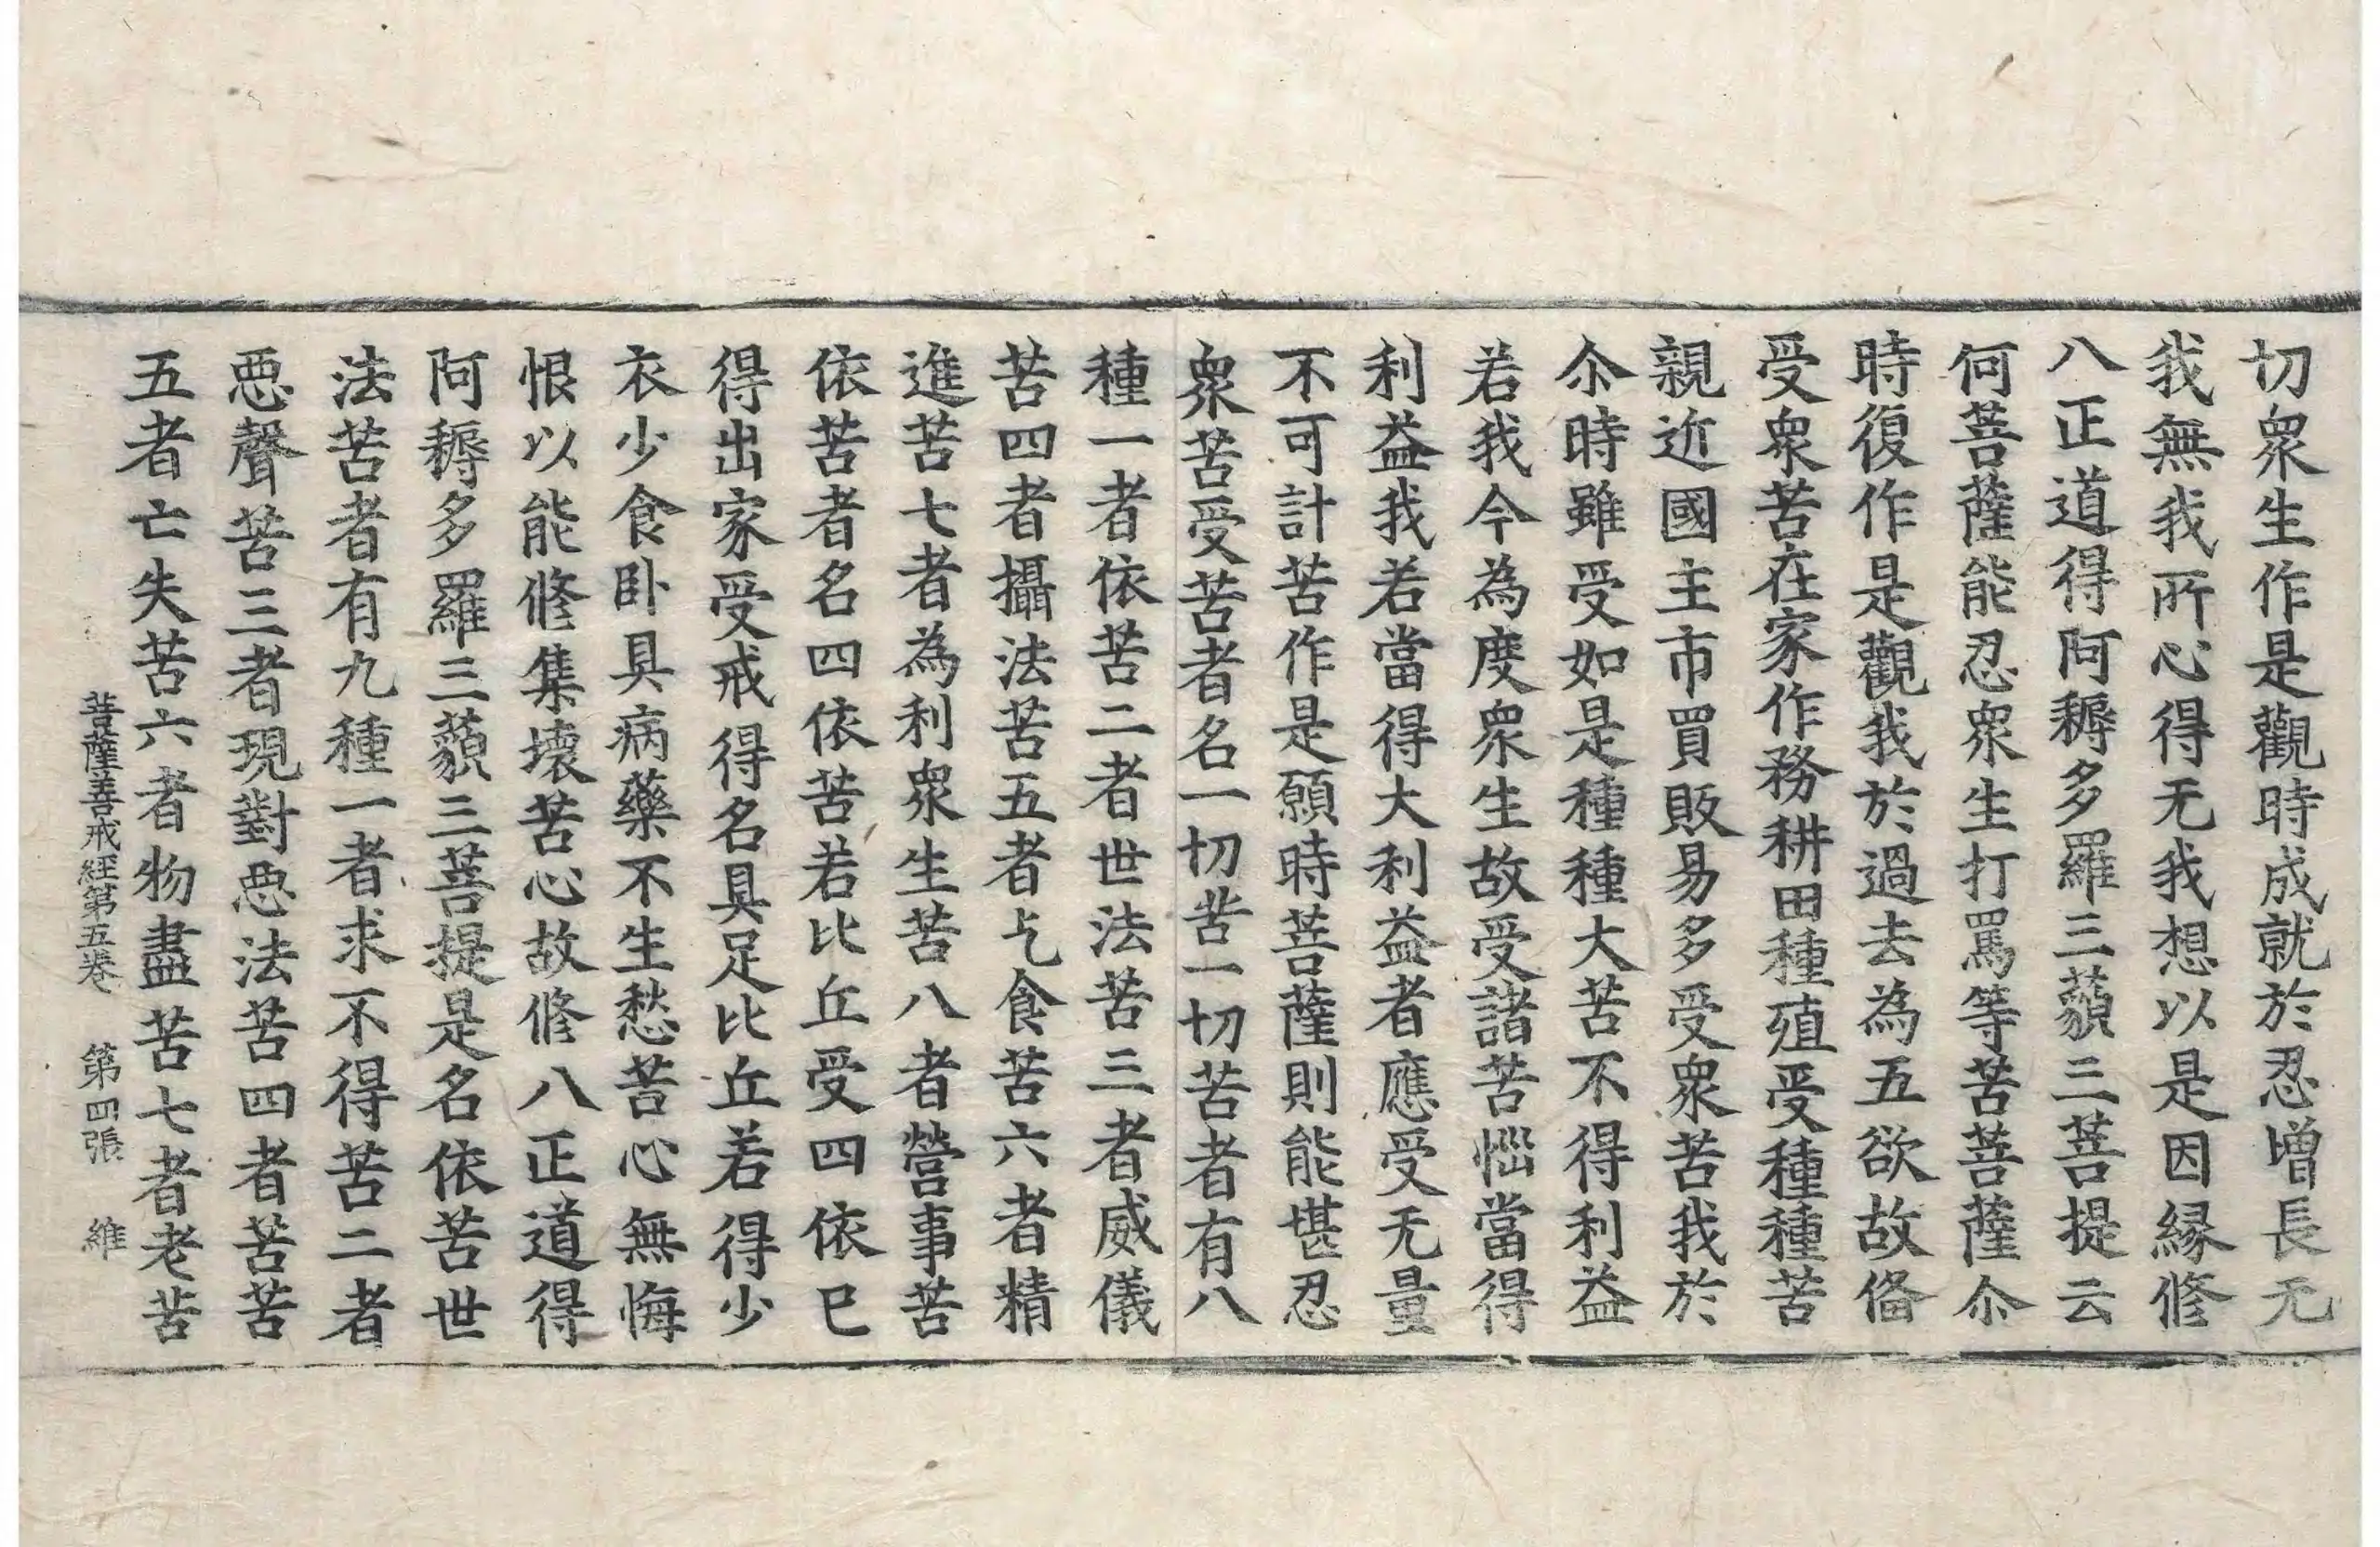 切衆生作是觀時成就於忍增長无
我無我所心得无我想以是因緣修
八正道得阿耨多羅三藐三菩提云
何菩薩能忍衆生打罵等苦菩薩尒
時復作是觀我於過去為五欲故俻
受衆苦在家作務耕田種殖受種種苦
親近國主市買販易多受衆苦我於
尒時雖受如是種種大苦不得利益
若我今為度衆生故受諸苦惱當得
利益我若當得大利益者應受无量
不可計苦作是願時菩薩則能堪忍
衆苦受苦者名一切苦一切苦者有八
種一者依苦二者世法苦三者威儀
苦四者攝法苦五者乞食苦六者精
進苦七者為利衆生苦八者營事苦
依苦者名四依苦若比丘受四依已
得出家受戒得名具足比丘若得少
衣少食卧具病藥不生愁苦心無悔
恨以能修集壞苦心故修八正道得
阿耨多羅三藐三菩提是名依苦世
法苦者有九種一者求不得苦二者
惡聲苦三者現對惡法苦四者苦苦
五者亡失苦六者物盡苦七者老苦
菩薩善戒經第五卷　第四張　維